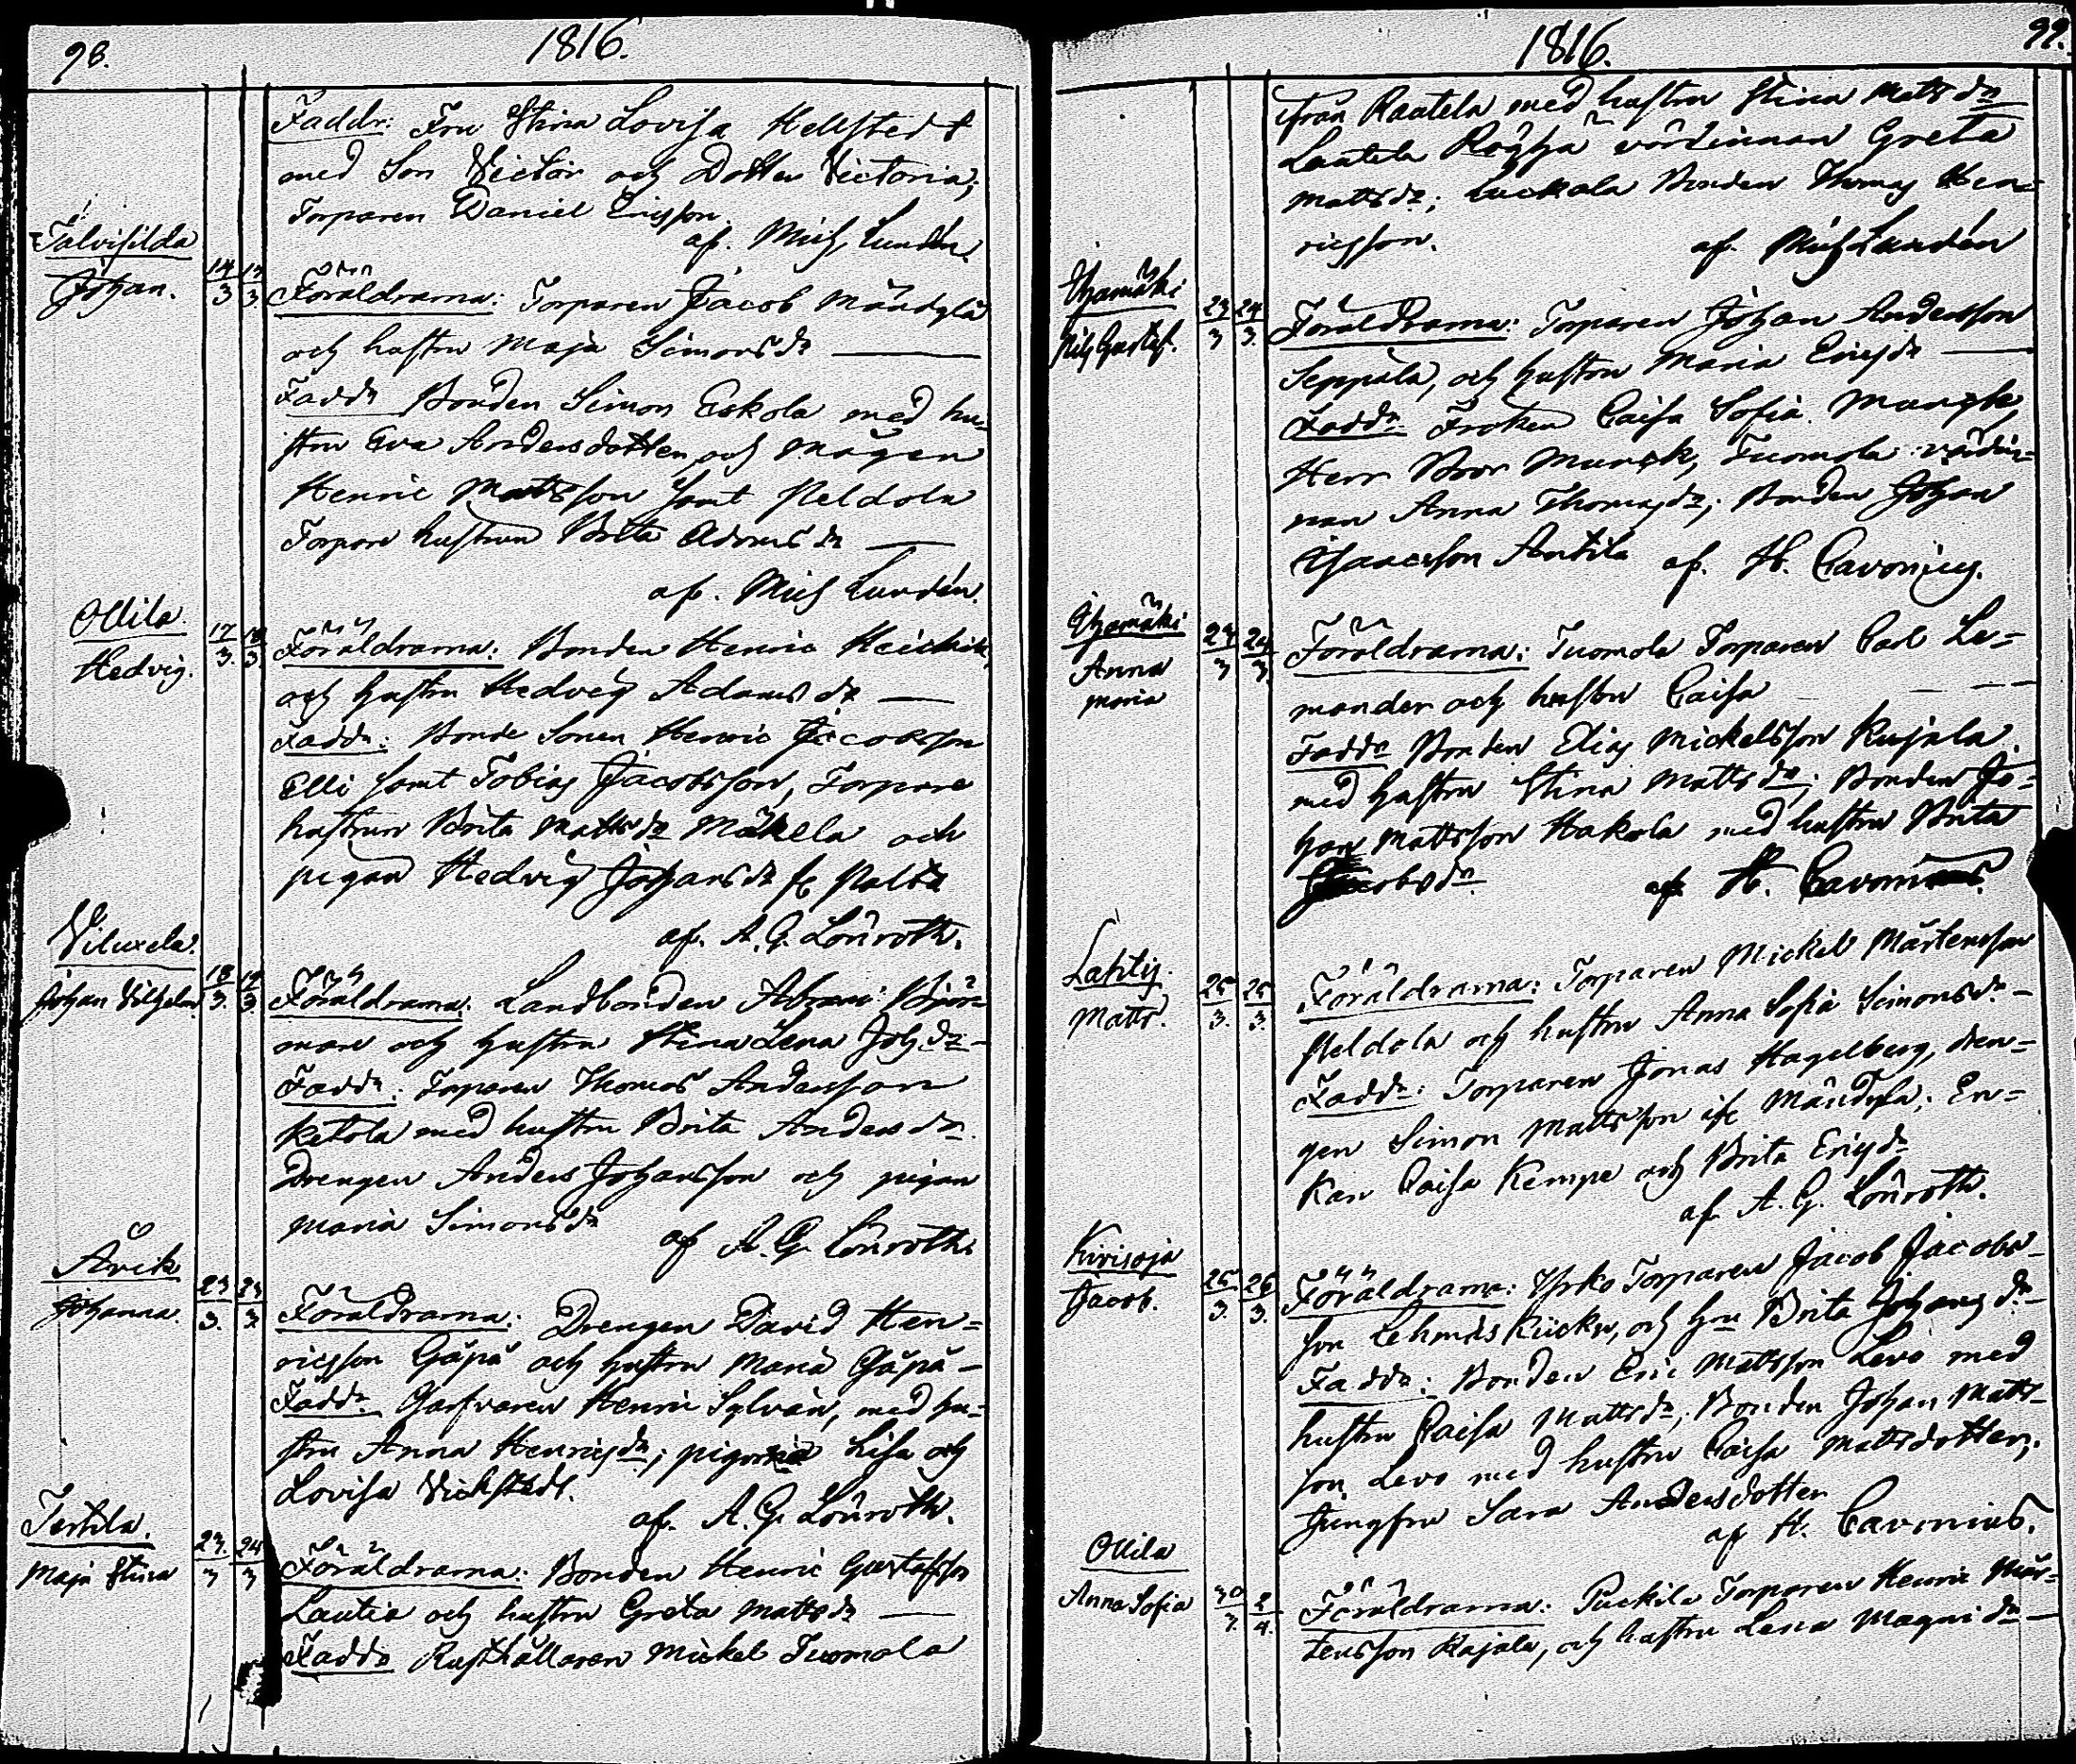 98.
1816.
Faddr: Fru Stina Lovisa Hellsted t
med Son Victor och Dotter Victoria;
Torparen Daniel Ericsson.
af. Mich Lundén.
Talvisilda
Johan.
14/3
Föräldrarna: Torparen Jacob Mändylä
och hustru Maja Simonsdr
Faddr Bonden Simon Eskola med hu-
stru Eva Andersdotter och Mågen
Henric Mattsson samt Peldola
Torpare hustrun Brita Adamsdr
af. Mich Lundén.
Ollila.
Hedvig.
17/3. 18/3
Föräldrarna: Bonden Henric Heickilä
och hustru Hedvig Adamsdr
Faddr: Bonde Sonen Henric Jacobsson
Elli samt Tobias Jacobsson, Torpare
hustrun Brita Mattsdr Mäkelä och
pigan Hedvig Johansdr
af. A. G. Lönroth.
Viluxela.
Johan Vilhelm.
18/3. 19/3.
Föräldrarna: Landbonden Abram Björk-
man och hustru Stina Lena Joh.dr
Faddr: Torparen Thomas Andersson
Ketola med hustru Brita Andersdr.
Drengen Anders Johansson och pigan
Maria Simonsdr
af A. G. Lönroth.
Åvik
Johanna.
23/3. 23/3
Föräldrarna: Drengen David Hen-
ricsson Gåpå och hustru Maria Gåpå
Faddr. Garfvaren Henric Sylvan, med hu-
stru Anna Henricsdr; pigorna Lisa och
Lovisa Vickstedt.
af. A. G. Lönroth.
Jertila.
Maja Stina
23/3 24/3
Föräldrarna: Bonden Henric Gustafsson
Lautia och hustru Greta Mattsdr
Faddr Rusthållaren Mickel Tuomola
1816.
99.
ifrån Raatela med hustru Stina Mattsdr
Laatela värdinnan Greta
Mattsdr; Luckola Bonden Thomas Hen-
ricsson.
af. Mich Lundén
Ojamäki
Nils Gustaf.
23/3 24/3.
Föräldrarna: Torparen Johan Andersson
Seppälä, och hustru Maria Ericsdr
Faddr Fröken Caisa Sofia Munck
Herr Bror Munck, Tuomola värdin-
nan Anna Thomasdr; Bonden Johan
Isaacsson Antila af. H. Cavonius.
Ojamäki
Anna
Maria
23/3 24/3
Föräldrarna: Tuomola Torparen Carl Le-
mander och hustru Caisa
Faddr Bonden Elias Mickelsson Kujala
med hustru Stina Mattsdr; Bonden Jo-
han Mattsson Hakola med hustru Brita
Jacobsdr.
af H. Cavonius.
Lahtis.
Matts.
25/3. 25/3.
Föräldrarna: Torparen Mickel Mårtensson
Peldola och hustru Anna Sofia Simonsdr.
Faddr: Torparen Jonas Hagelberg, dren-
gen Simon Mattsson Mändylä; En-
kan Caisa Kempe och Brita Ericsdr
af. A. G. Lönroth.
Kirisoja
Jacob.
25/3. 26/3.
Föräldrarna: Yrkö Torparen Jacob Jacobs-
son och hru Brita Johansdr
Faddr: Bonden Eric Mattsson Levo med
hustru Caisa Mattsdr; Bonden Johan Matts-
son Levo med hustru Caisa Mattsdotter.
Jungfru Sara Andersdotter
af H. Cavonius.
Ollila
Anna Sofia
30/3. 2/4.
Föräldrarna: Puckila Torparen Henric Mår-
tensson Kajala, och hustru Lena Magnidr